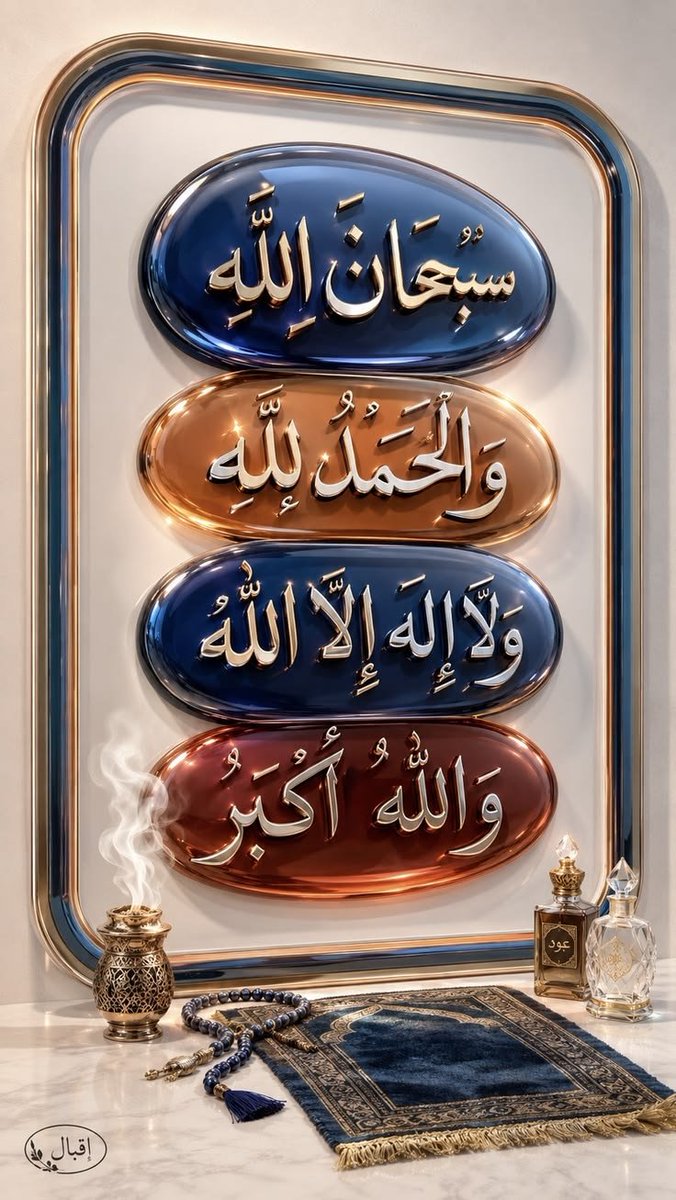 سُبْحَانَ اللَّهِ
وَالْحَمْدُ لِلَّهِ
وَلَا إِلَهَ إِلَّا اللَّهُ
وَاللَّهُ أَكْبَرُ
عود
إقبال